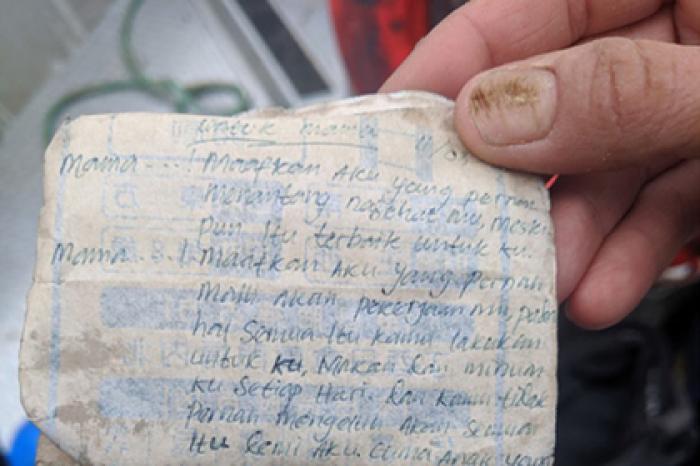 untuk mama
Mama ---! Maafkan Aku yang pernah
menantang nasehat mu, meski
pun Itu terbaik untuk ku.
Mama - - - ! Maafkan Aku yang pernah
Malu akan pekerjaan mu, pada
hal Semua Itu kamu lakukan
untuk ku, Makan dan minum
ku Setiap Hari. dan kamu tidak
Pernah mengeluh akan Semua
Itu Demi Aku. Cuma Anak yang